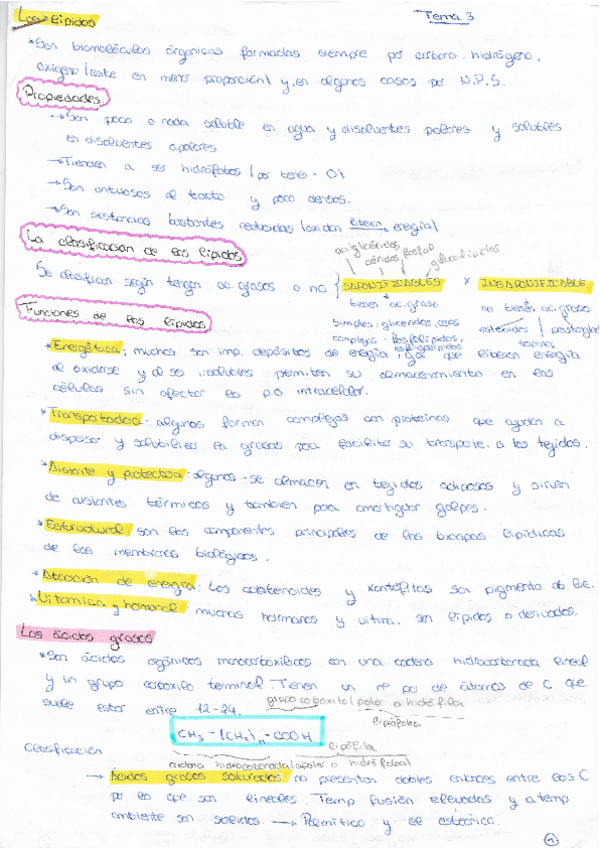 Los lípidos Tema 3
• Son biomoléculas órganicas formadas siempre por carbono, hidrógeno,
oxigeno (este en menor proporción) y, en algunos casos por N.P.S.
Propiedades
→ Son poco o nada soluble en agua y disolventes polares y solubles
en disolventes apolares
→ Tienden a ser hidrófobos (por tener - O)
→ Son untuosos al tacto y poco densos.
→ Son sustancias bastantes reducidas (oxidan liberan energia)
La clasificación de los lípidos
acilglicéridos,
céridos, fosfol
glucolípidos
Se clasifican según tengan ac. grasos o no { SAPONIFICABLES × INSAPONIFICABLE
tienen ac. graso no tienen ac. graso
Simples: gliceridos, ceras esteroides / prostagla
complejos: fosfolípidos, terpenos,
esfingolípidos
Funciones de los lípidos
• Energética; muchos son imp. depósitos de energía, que liberen energia
al oxidarse y al ser insolubles permiten su almacenamiento en las
células sin afectar la p.o intracelular.
• Transportadora: algunos forman complejos con proteinas que ayudan a
dispersar y solubilizar la grasas para facilitar su transporte a los tejidos.
• Aislante y protectora: algunos se almacen en tejidos adiposos y sirven
de aislantes térmicos y tambien para amortiguar golpes.
• Estructural, son los componentes principales de las bicapas lipídicas
de las membranas biológicas.
• de energía: Los carotenoides y xantófilas son pigmento
• Vitamica y hormonal: muchas hormonas y vitam. son lípidos o derivados.
Los ácidos grasos
• Son ácidos orgánicos monocarboxílicos con una cadena hidrocarbonada lineal
y un grupo carboxilo terminal. Tienen un nº par de átomos de C que
suele estar entre 12-24. grupo carboxilo (polar o hidrófila
lipófoba
CH3 - (CH2)n - COOH
lipófila
Clasificación cadena hidrocarbonada (apolar o hidrófoba)
→ Ácidos grasos saturados: no presentan dobles enlaces entre los C
por lo que son lineales. Temp fusión elevadas y a temp
ambiente son solidos. → Palmítico y el esteárico.
1